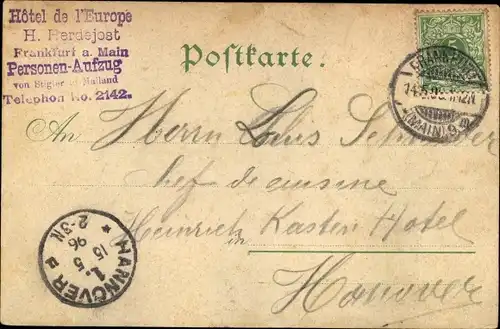 Hôtel de l'Europe
H. Herdejost
Frankfurt a. Main
Personen-Aufzug
von Stigler Mailand
Telephon No. 2142.
Postkarte.
FRANKFURT
(MAIN) 9
An Herrn Louis
chef de cuisine
Heinrich Kasten Hotel
in Hanover
HANNOVER
1.5
15 5
96
2-3N